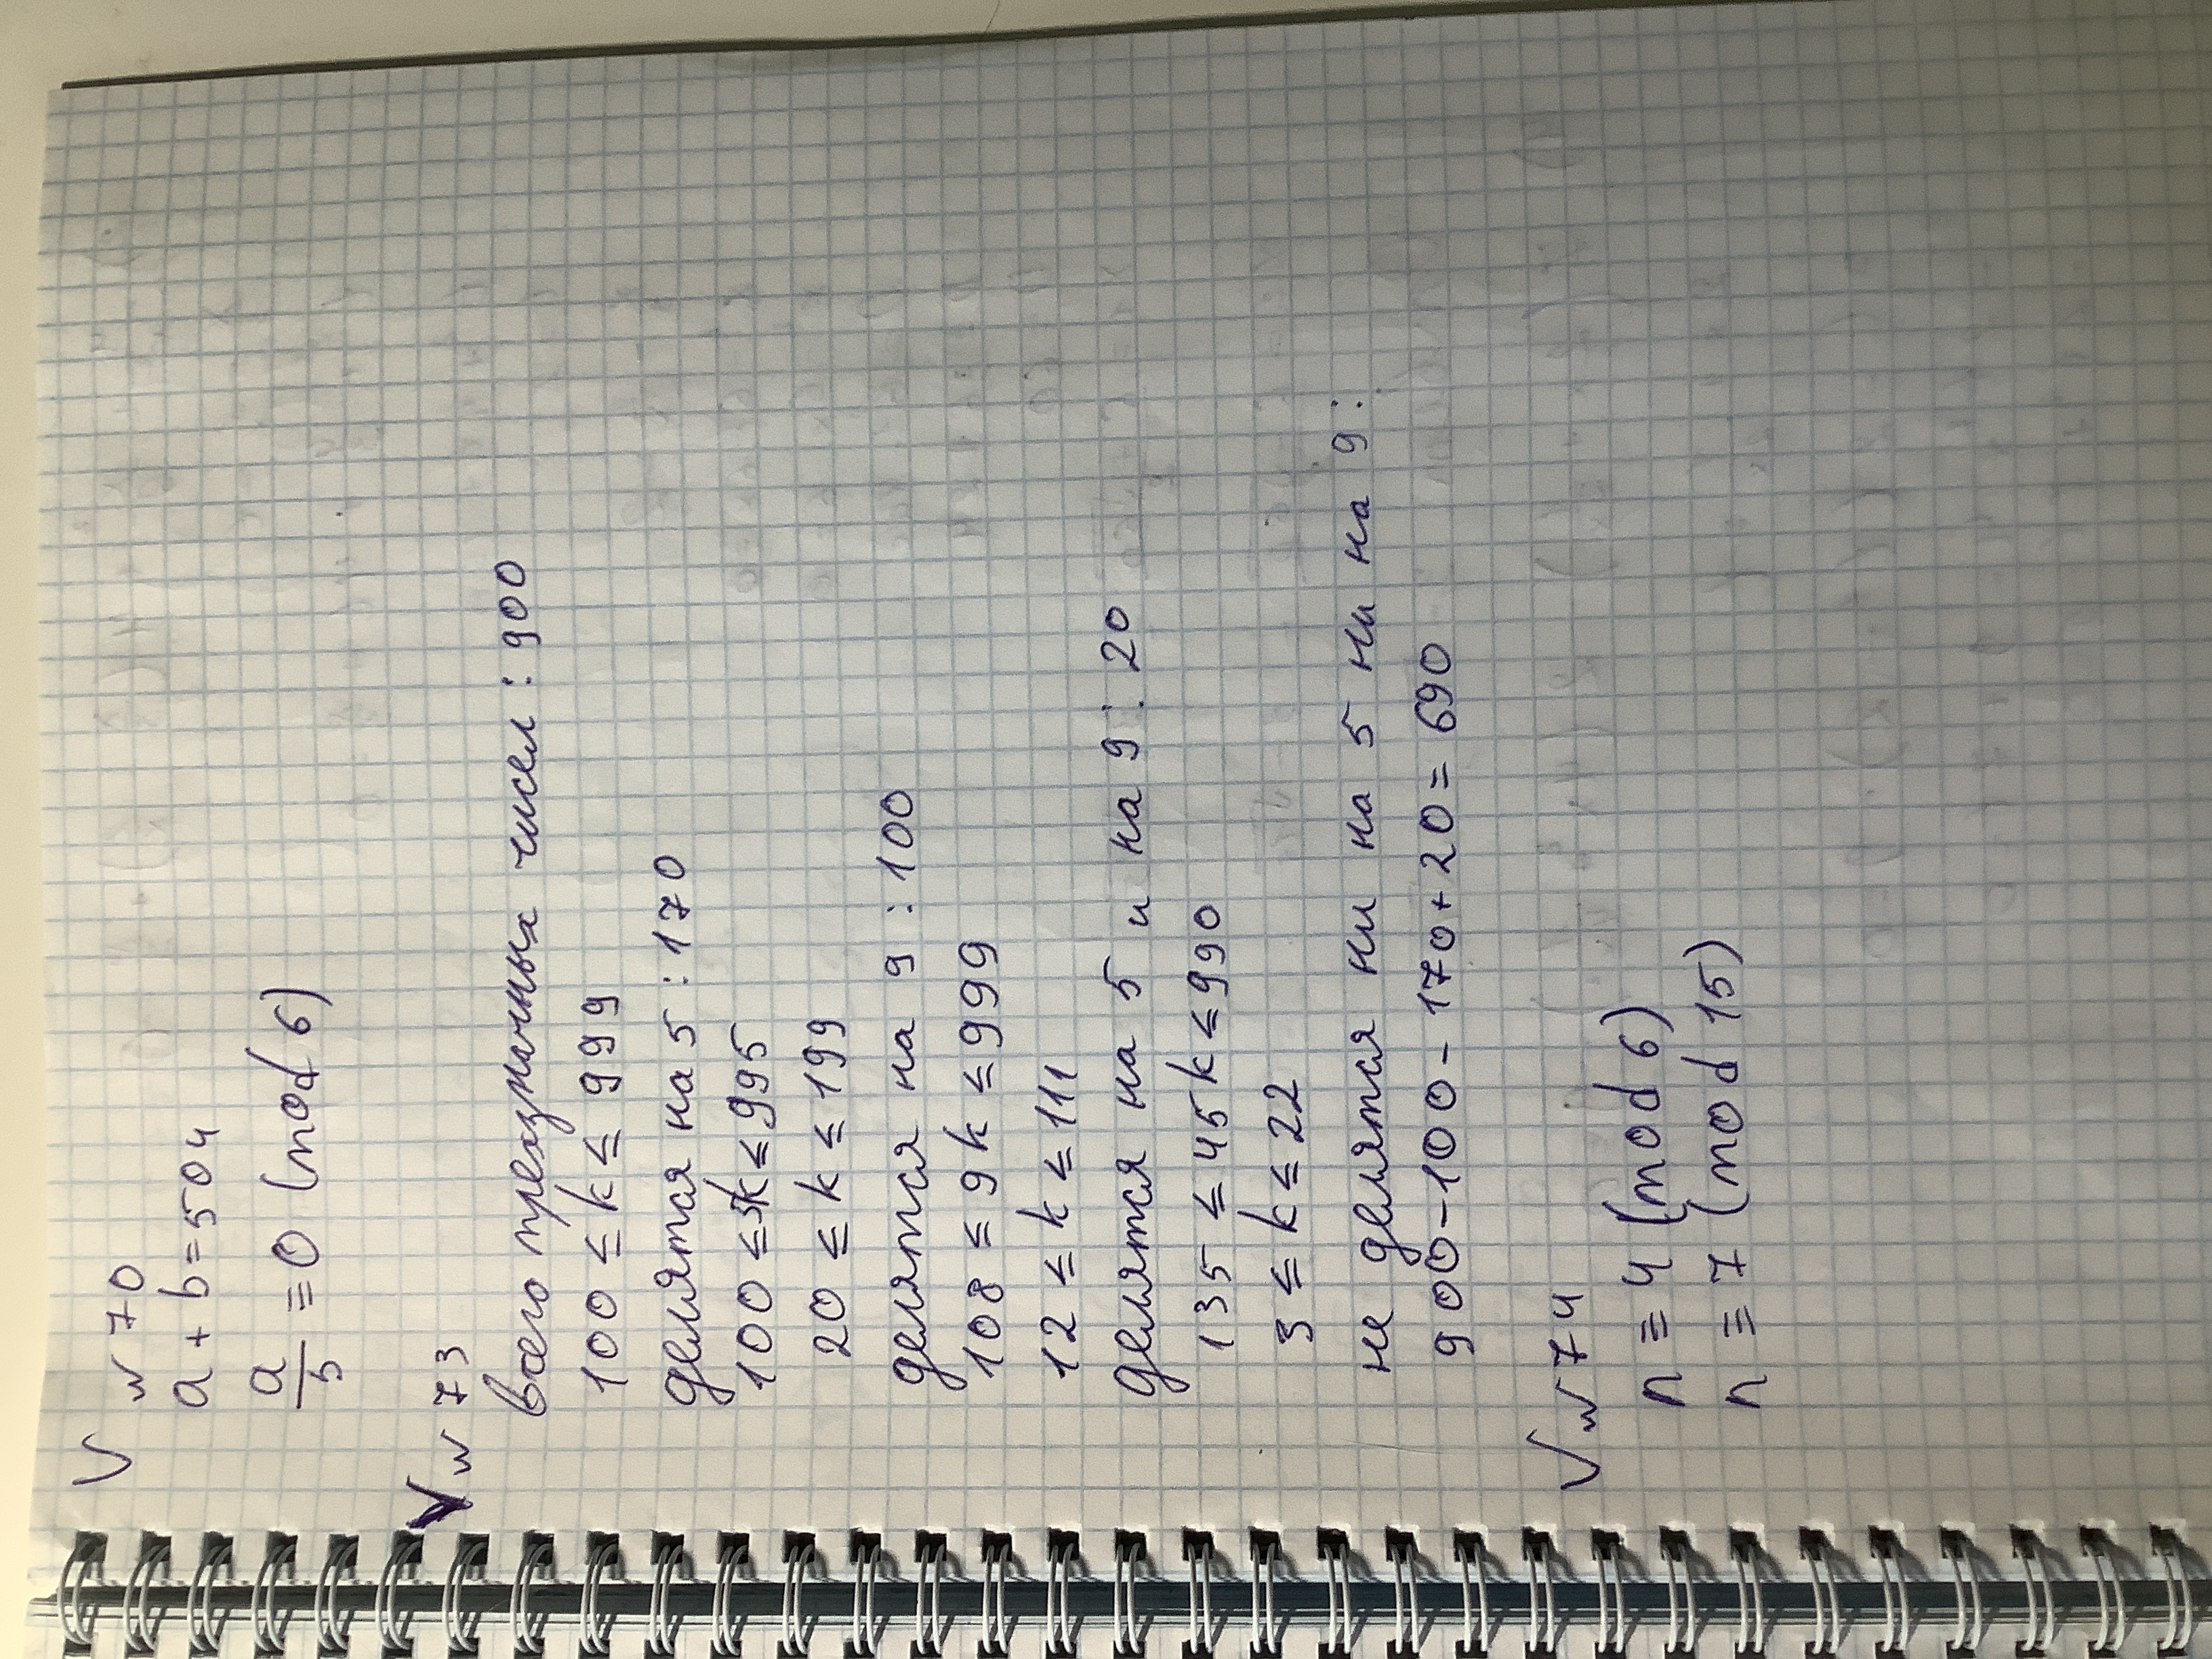 V № 70
a + b = 504
a/5 ≡ 0 (mod 6)
V № 73
всего трехзначных чисел : 900
100 ≤ k ≤ 999
делятся на 5 : 170
100 ≤ 5k ≤ 995
20 ≤ k ≤ 199
делятся на 9 : 100
108 ≤ 9k ≤ 999
12 ≤ k ≤ 111
делятся на 5 и на 9 : 20
135 ≤ 45k ≤ 990
3 ≤ k ≤ 22
не делятся ни на 5 ни на 9 :
900 - 100 - 170 + 20 = 690
V № 74
n ≡ 4 (mod 6)
n ≡ 7 (mod 15)